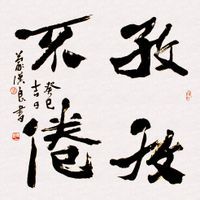 孜孜
不倦
癸巳
吉日
蒙漢良書